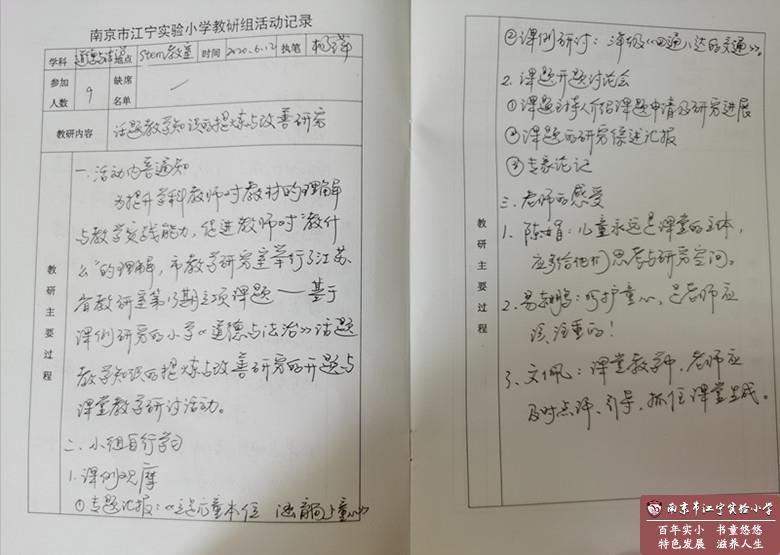 南京市江宁实验小学教研组活动记录
学科 道德与法治 地点 Stem教室 时间 2020.6.12 执笔
参加人数 9 缺席名单 —
教研内容 话题教学知识的提炼与改善研究
教研主要过程
一、活动内容通知
为提升学科教师对教材的理解
与教学实践能力，促进教师对“教什
么”的理解，市教学研究室举行了江苏
省教研室第13期立项课题——基于
课例研究的小学《道德与法治》话题
教学知识的提炼与改善研究的开题与
课堂教学研讨活动。
二、小组自行学习
1.课例观摩
①专题汇报：《立足儿童本位 童心》
教研主要过程
②课例研讨：三年级《四通八达的交通》。
2.课题开题讨论会
①课题主持人介绍课题申请及研究进展
②课题的研究综述汇报
③专家论证
三、老师的感受
1、陈娟：儿童永远是课堂的主体，
应多给他们思考与研究空间。
2、鹏：呵护童心，是老师应
该注重的！
3、文佩：课堂教学中，老师应
及时点评、引导，抓住课堂生成。
南京市江宁实验小学
百年实小 书童悠悠
特色发展 滋养人生